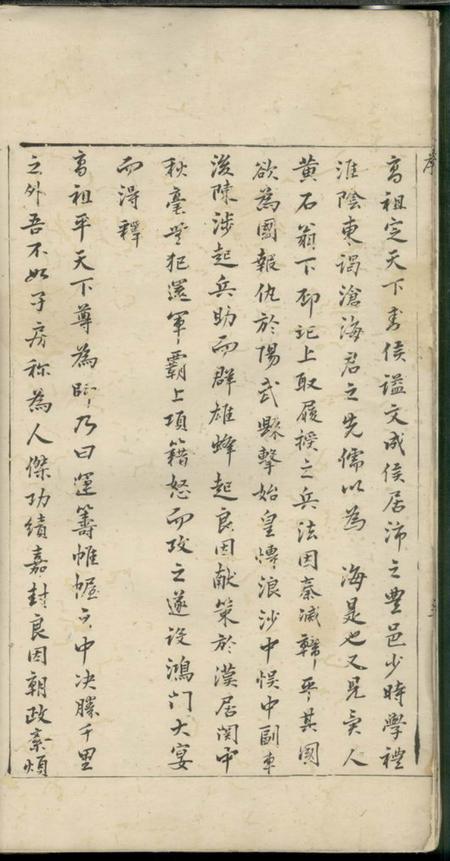 序
高祖定天下封侯謚文成侯居沛之豊邑少時學禮
淮陰東謁滄海君之先儒以為 海是也又見異人
黄石翁下邳圯上取履授之兵法因秦滅韓平其國
欲為國報仇於陽武縣擊始皇愽浪沙中悮中副車
後陳涉起兵助而群雄蜂起良因献策於漢居関中
秋毫無犯還軍霸上項籍怒而攻之遂設鴻门大宴
而得釋
高祖平天下尊為師乃曰運籌帷幄之中决勝千里
之外吾不如子房称為人傑功績嘉封良因朝政素煩